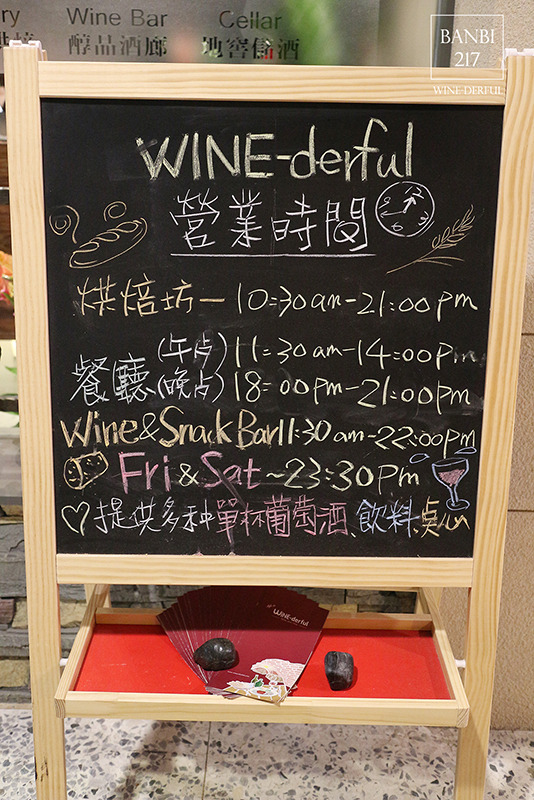 ry Wine Bar Cellar
醇品酒廊 地窖儲酒
BANBI
217
WINE-DERFUL
WINE-derful
營業時間
烘焙坊— 10:30am-21:00pm
餐廳(午店) 11:30am-14:00pm
(晚店) 18:00pm-21:00pm
Wine&Snack Bar 11:30am-22:00pm
Fri & Sat ~23:30pm
♡提供多種單杯葡萄酒、飲料、桌心
WINE-derful